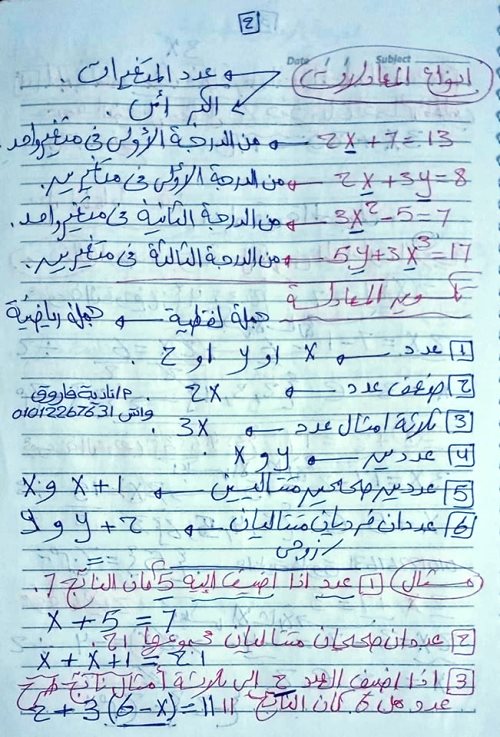 2
Date / / Subject
انواع المعادلات ← عدد المتغيرات.
← اكبر أس.
2x + 7 = 13 ← من الدرجة الأولى فى متغير واحد.
2x + 3y = 8 ← من الدرجة الأولى فى متغيرين.
3x² - 5 = 7 ← من الدرجة الثانية فى متغير واحد.
5y + 3x³ = 17 ← من الدرجة الثالثة فى متغيرين.
تكوين المعادلة
جملة لفظية ← جملة رياضية
1 عدد ← x او y او z .
2 ضعف عدد ← 2x
م/نادية فاروق
واتس 01012267631
3 ثلاثة امثال عدد ← 3x .
4 عددين ← x و y
5 عددين صحيحين متتاليين ← x و x+1
6 عددان فرديان متتاليان ← y و y+2
زوجى
مثال 1 عدد اذا اضيف إليه 5 كان الناتج 7.
x + 5 = 7
2 عددان صحيحان متتاليان مجموعها 21.
x + x+1 = 21
3 اذا اضيف العدد 2 إلى ثلاثة أمثال ناتج طرح
عدد من 6 كان الناتج 11 2 + 3(6-x) = 11